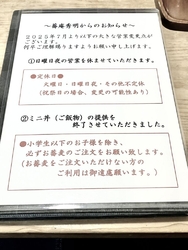 ～蕎庵秀明からのお知らせ～
2025年7月より以下の大きな営業変更点が
ございます。
何卒ご理解賜りますようお願い申し上げます。
①日曜日夜の営業を休ませていただきます。
●定休日●
火曜日・日曜日夜・その他不定休
（祝祭日の場合、変更の可能性あり）
②ミニ丼（ご飯物）の提供を
終了させていただきました。
●小学生以下のお子様を除き、
必ずお蕎麦のご注文をお願い致します。
（お蕎麦をご注文いただけない方の
ご利用は御遠慮願います。）